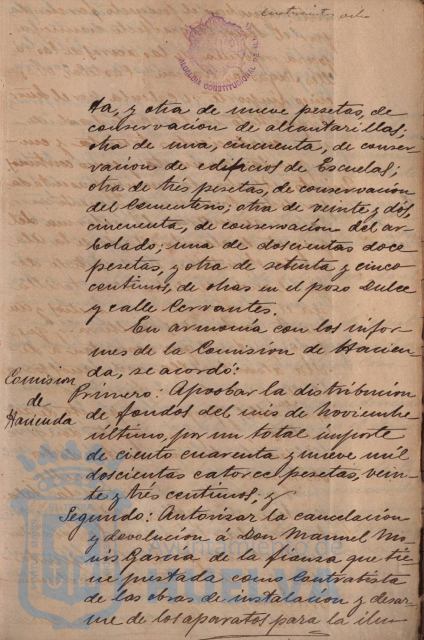 cuatrocientos ocho
ALCALDIA CONSTITUCIONAL DE
ta, y otra de nueve pesetas, de
conservación de alcantarillas;
otra de una, cincuenta, de conser-
vación de edificios de Escuelas;
otra de tres pesetas, de conservación
del Cementerio; otra de veinte y dos,
cincuenta, de conservación del ar-
bolado; una de doscientas doce
pesetas, y otra de setenta y cinco
centimos, de obras en el pozo Dulce
y calle Cervantes.
En armonia con los infor-
mes de la Comisión de Hacien-
da, se acordó:
Comision
de
Hacienda
Primero: Aprobar la distribución
de fondos del mes de Noviembre
último, por un total importe
de ciento cuarenta y nueve mil
doscientas catorce pesetas, vein-
te y tres centimos. y
Segundo: Autorizar la cancelación
y devolución a Don Manuel Mo-
nis García de la fianza que tie-
ne prestada como contratista
de las obras de instalación y desar-
me de los aparatos para la ilu-